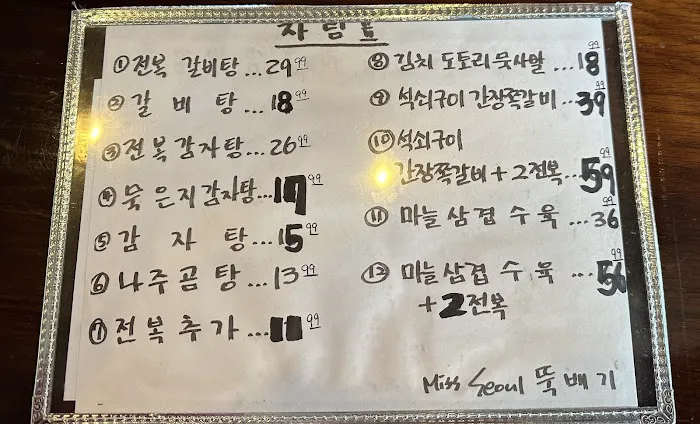 차림표
① 전복 갈비탕...29.99
② 갈비탕...18.99
③ 전복감자탕...26.99
④ 묵은지감자탕...17.99
⑤ 감자탕...15.99
⑥ 나주곰탕...13.99
⑦ 전복추가...11.99
⑧ 김치 도토리묵사발...18.99
⑨ 석쇠구이 간장쪽갈비...39.99
⑩ 석쇠구이
간장쪽갈비+2전복...59.99
⑪ 마늘삼겹수육...36.99
⑫ 마늘삼겹수육...56.99
+2전복
Miss Seoul 뚝배기